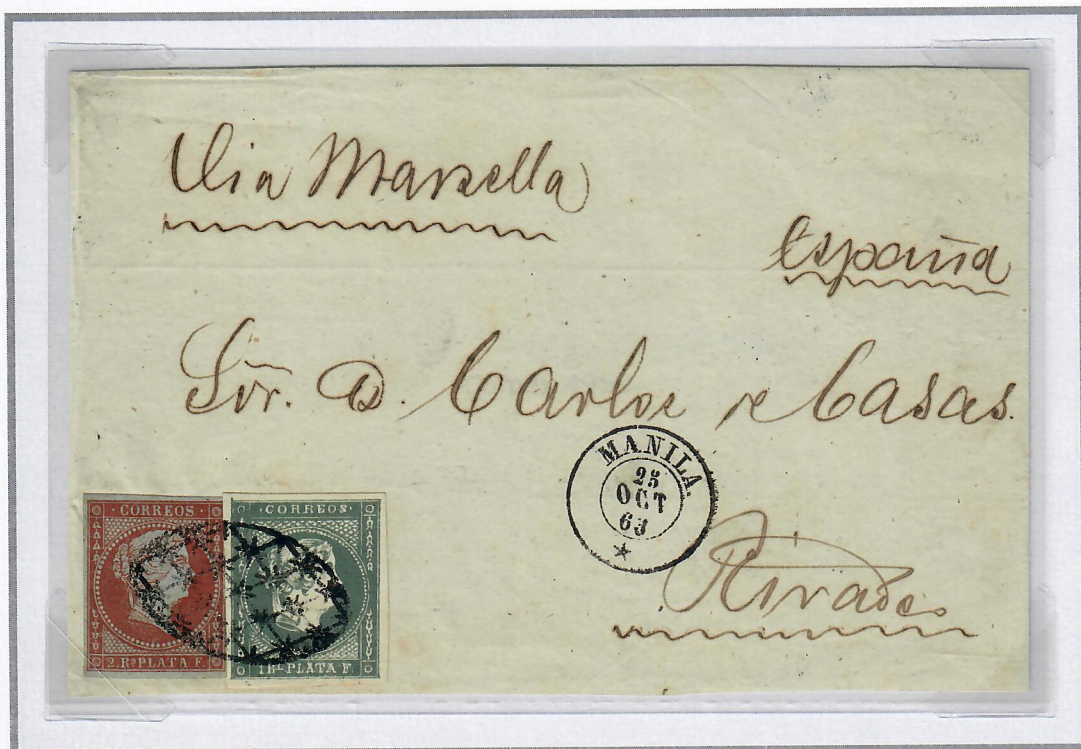 Via Marsella
España
Sõr. D. Carlos de Casas.
MANILA.
25
OCT
63
Rivadeo
CORREOS
2. Rs PLATA F.
CORREOS
1 Rl PLATA F.